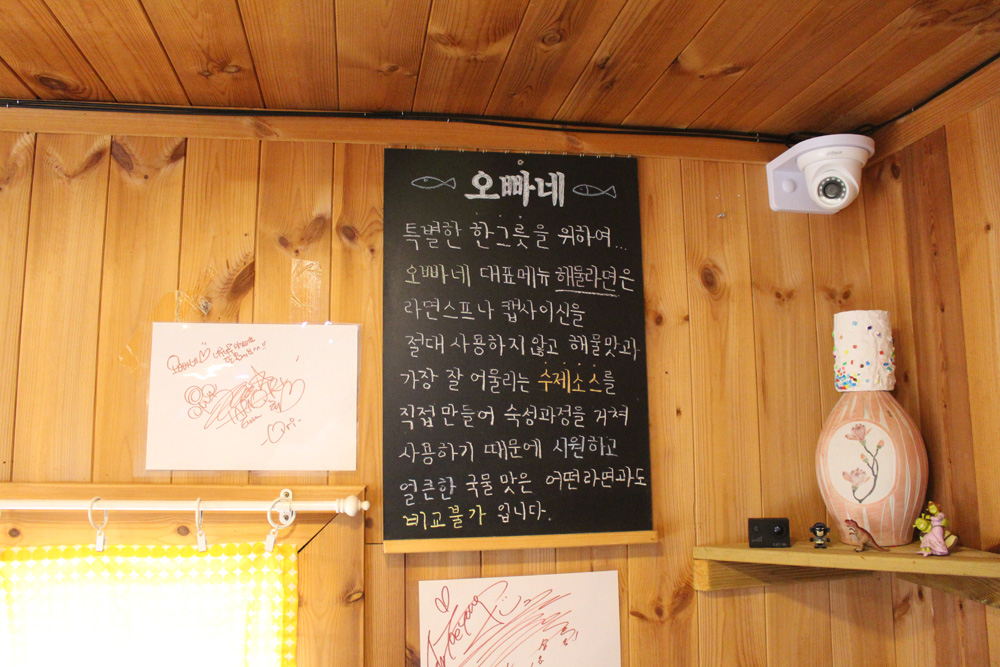 오빠네
특별한 한그릇을 위하여...
오빠네 대표메뉴 해물라면은
라면스프나 캡사이신을
절대 사용하지 않고 해물맛과
가장 잘 어울리는 수제소스를
직접 만들어 숙성과정을 거쳐
사용하기 때문에 시원하고
얼큰한 국물 맛은 어떤라면과도
비교불가 입니다.
오빠네♡